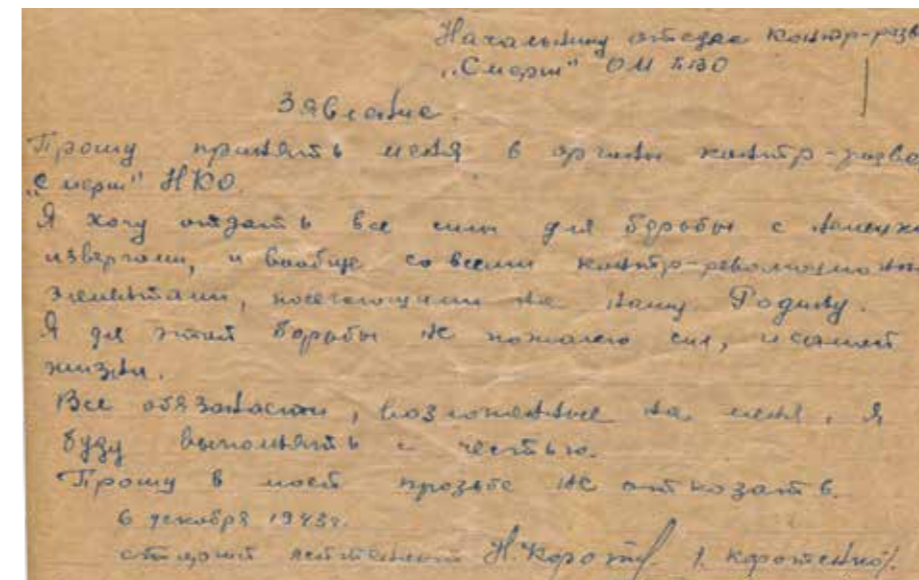 Начальнику отдела контр-разв
„Смерш" ОМ БВО
Заявление.
Прошу принять меня в органы контр-разве
„Смерш" НКО.
Я хочу отдать все силы для борьбы с немецки
извергами, и вообще со всеми контр-революционны
элементами, посегающими на нашу Родину.
Я для этой борьбы не пожалею сил, и самой
жизни.
Все обязаности, возложенные на меня, я
буду выполнять с честью.
Прошу в моей прозьбе не отказать.
6 декабря 1943г.
старший лейтенант Н. Корот